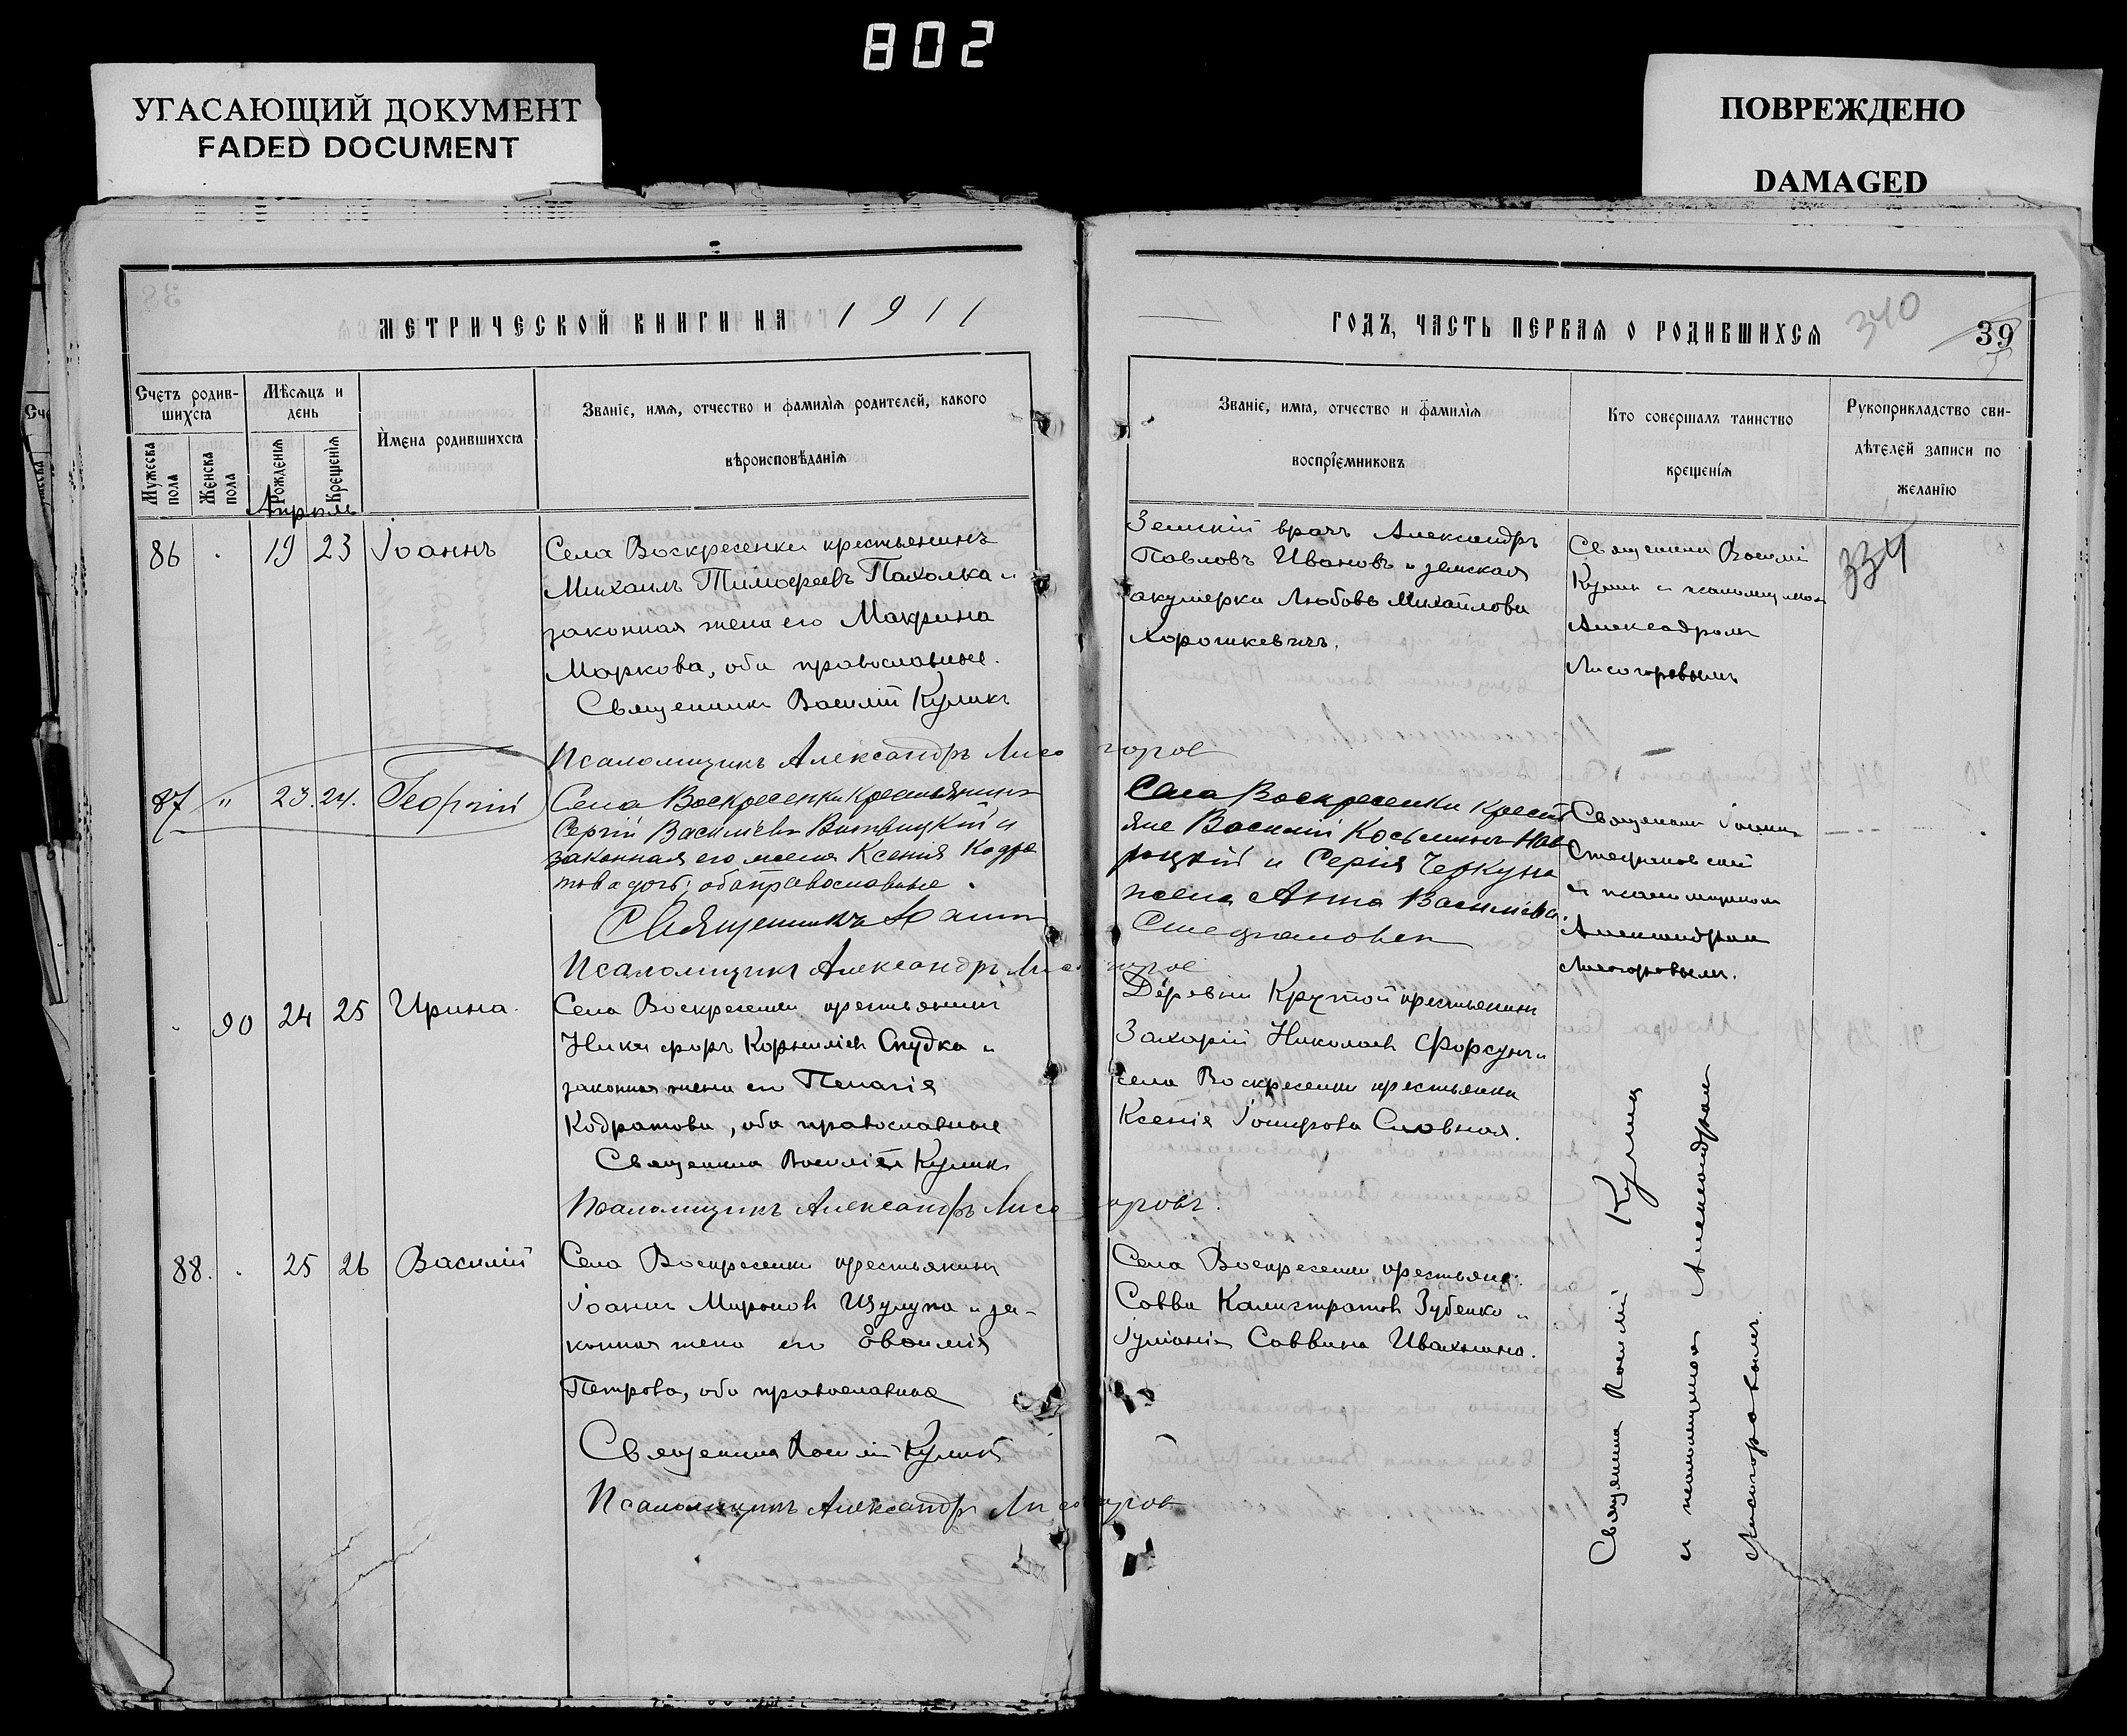 802
УГАСАЮЩИЙ ДОКУМЕНТ
FADED DOCUMENT
ПОВРЕЖДЕНО
DAMAGED
МЕТРИЧЕСКОЙ КНИГИ НА 1911
ГОДЪ, ЧАСТЬ ПЕРВАЯ О РОДИВШИХСЯ
340
39
Счетъ родив-
шихся
Мужеска пола
Женска пола
Мѣсяцъ и
день
Рожденія
Крещенія
Имена родившихся
Званіе, имя, отчество и фамилія родителей, какого
вѣроисповѣданія
Званіе, имя, отчество и фамилія
воспріемниковъ
Кто совершалъ таинство
крещенія
Рукоприкладство сви-
дѣтелей записи по
желанію
Апрѣль
86 19 23 Іоаннъ
Села Воскресенки крестьянинъ
Михаилъ Тимофеевъ Пахолка и
законная жена его Макрина
Маркова, оба православные.
Священникъ Василій Куликъ
Псаломщикъ Александръ Лисогоров
Земскій врачъ Александръ
Павловъ Ивановъ и земская
акушерка Любовь Михайлова
Хорошкевичъ.
Священник Василій
Кулик и псаломщиком
Александром
Лисогоровымъ
334
87 " 23. 24. Георгій
Села Воскресенки Крестьянинъ
Сергій Василіевъ и
законная его жена Ксенія Кодра
това дочь; оба православные.
Священникъ Іоаннъ
Стефановскій
Псаломщикъ Александръ Лисогоров
Села Воскресенки Крестья
яне Василій Косьминъ
и Сергія Черкуна
жена Анна Василіева.
Священник Іоанн
Стефановскій
и псаломщиком
Александром
Лисогоровым.
90 24 25 Ирина.
Села Воскресенки крестьянинъ
Никифоръ Корнилієв Скудка и
законная жена его Пелагія
Кодратова, оба православные
Священник Василій Кулик
Псаломщикъ Александръ Лисогоровъ.
Деревни Крутой крестьянин
Захарій Николаев Форсун и
села Воскресенки крестьянка
Ксенія
88. 25 26 Василій
Села Воскресенки крестьянин
Іоанн Миронов Шулупа и за-
конная жена его Евфимія
Петрова, оба православные
Священник Василій Кулик
Псаломщикъ Александръ Лисогоров
Села Воскресенки крестьяне:
Савва Калистратов Зубенко и
Іуліанія Саввина Ивахнина.
Священник Василій Кулик
и псаломщиком Александром
Лисогоровымъ.